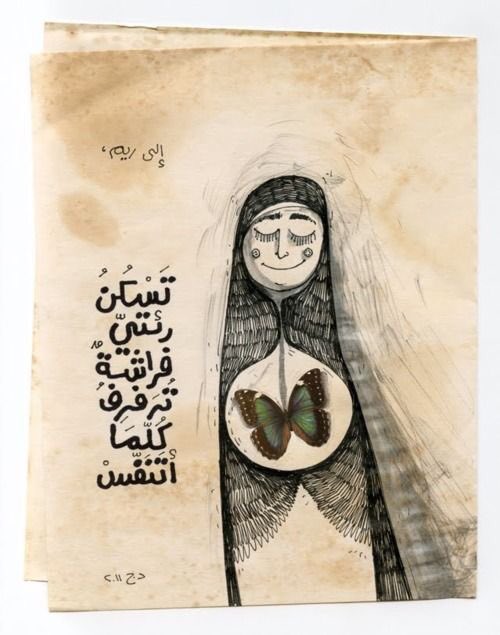 إلى ريم،
تَسْكُنُ
رئتيّ
فراشةٌ
تُرفرفُ
كُلّمَا
أتَنَفّسْ
د.ج ٢٠١١